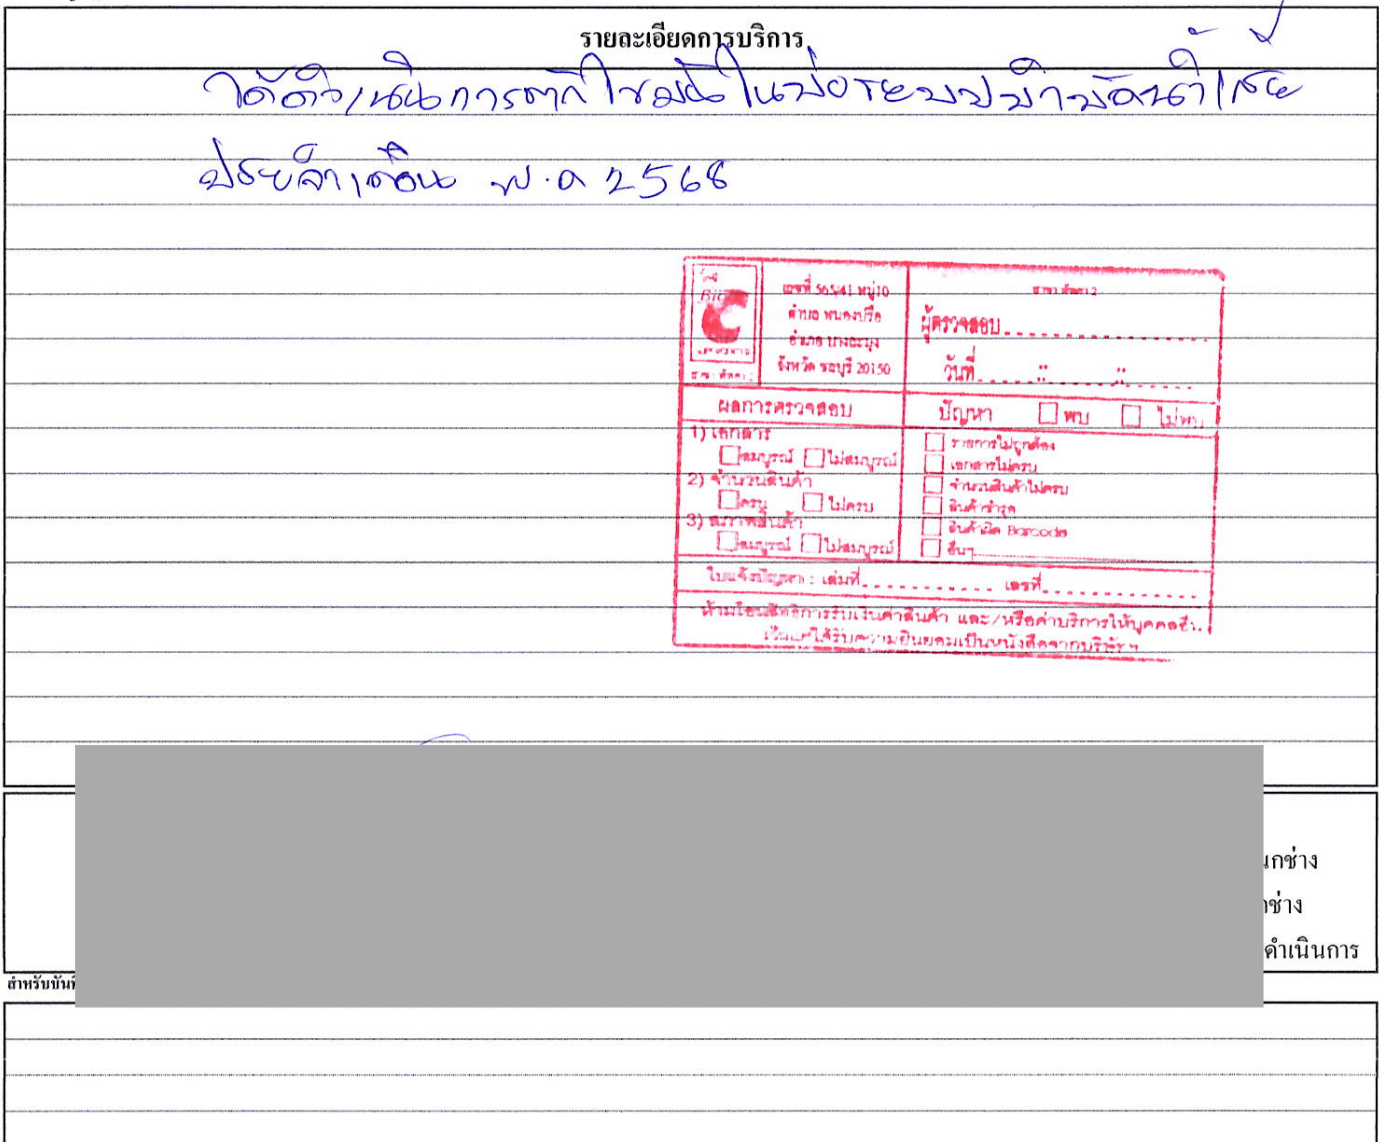 รายละเอียดการบริการ
ได้ดำเนินการตักไขมันในบ่อระบบบำบัดน้ำเสีย
ประจำเดือน พ.ค 2568
บิ๊กซี
BIG C
เลขที่ 565/41 หมู่10
ตำบล หนองปรือ
อำเภอ บางละมุง
จังหวัด ชลบุรี 20150
สาขา พัทยา 2
สาขา พัทยา 2
ผู้ตรวจสอบ
วันที่ / /
ผลการตรวจสอบ
ปัญหา พบ ไม่พบ
1) เอกสาร
สมบูรณ์ ไม่สมบูรณ์
2) จำนวนสินค้า
ครบ ไม่ครบ
3) สภาพสินค้า
สมบูรณ์ ไม่สมบูรณ์
รายการไม่ถูกต้อง
เอกสารไม่ครบ
จำนวนสินค้าไม่ครบ
สินค้าชำรุด
สินค้าผิด Barcode
อื่นๆ
ใบแจ้งปัญหา : เล่มที่ เลขที่
ห้ามโอนสิทธิการรับเงินค่าสินค้า และ/หรือค่าบริการให้บุคคลอื่น
เว้นแต่ได้รับความยินยอมเป็นหนังสือจากบริษัทฯ
นกช่าง
ช่าง
ดำเนินการ
สำหรับบัน